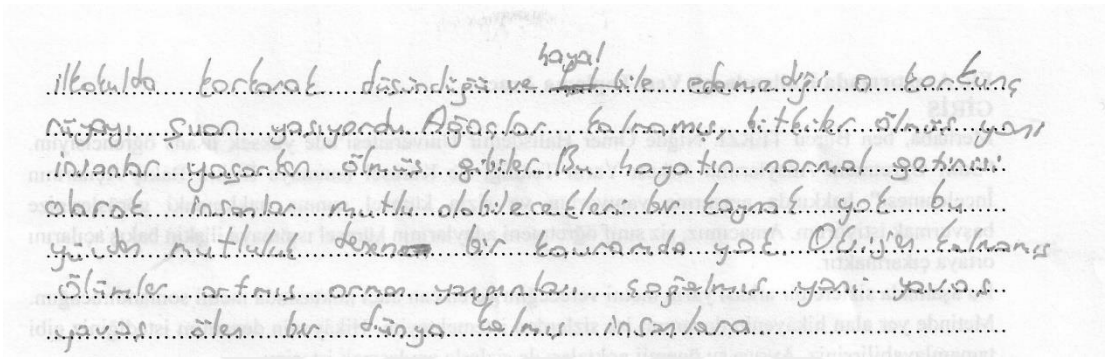 hayal
ilkokulda korkarak düşündüğü ve bile edemediği o korkunç
rüyayı şuan yaşıyordu. Ağaçlar kalmamış, bitkiler ölmüş yani
insanlar yaşarken ölmüş gibiler. Bu hayatın normal getirisi
olarak insanlar mutlu olabilecekleri bir kaynak yok bu
yüzden mutluluk denen bir kavramda yok. Oksijen kalmamış
Ölümler artmış orman yangınları çoğalmış yani yavaş
yavaş ölen bir dünya kalmış insanlara